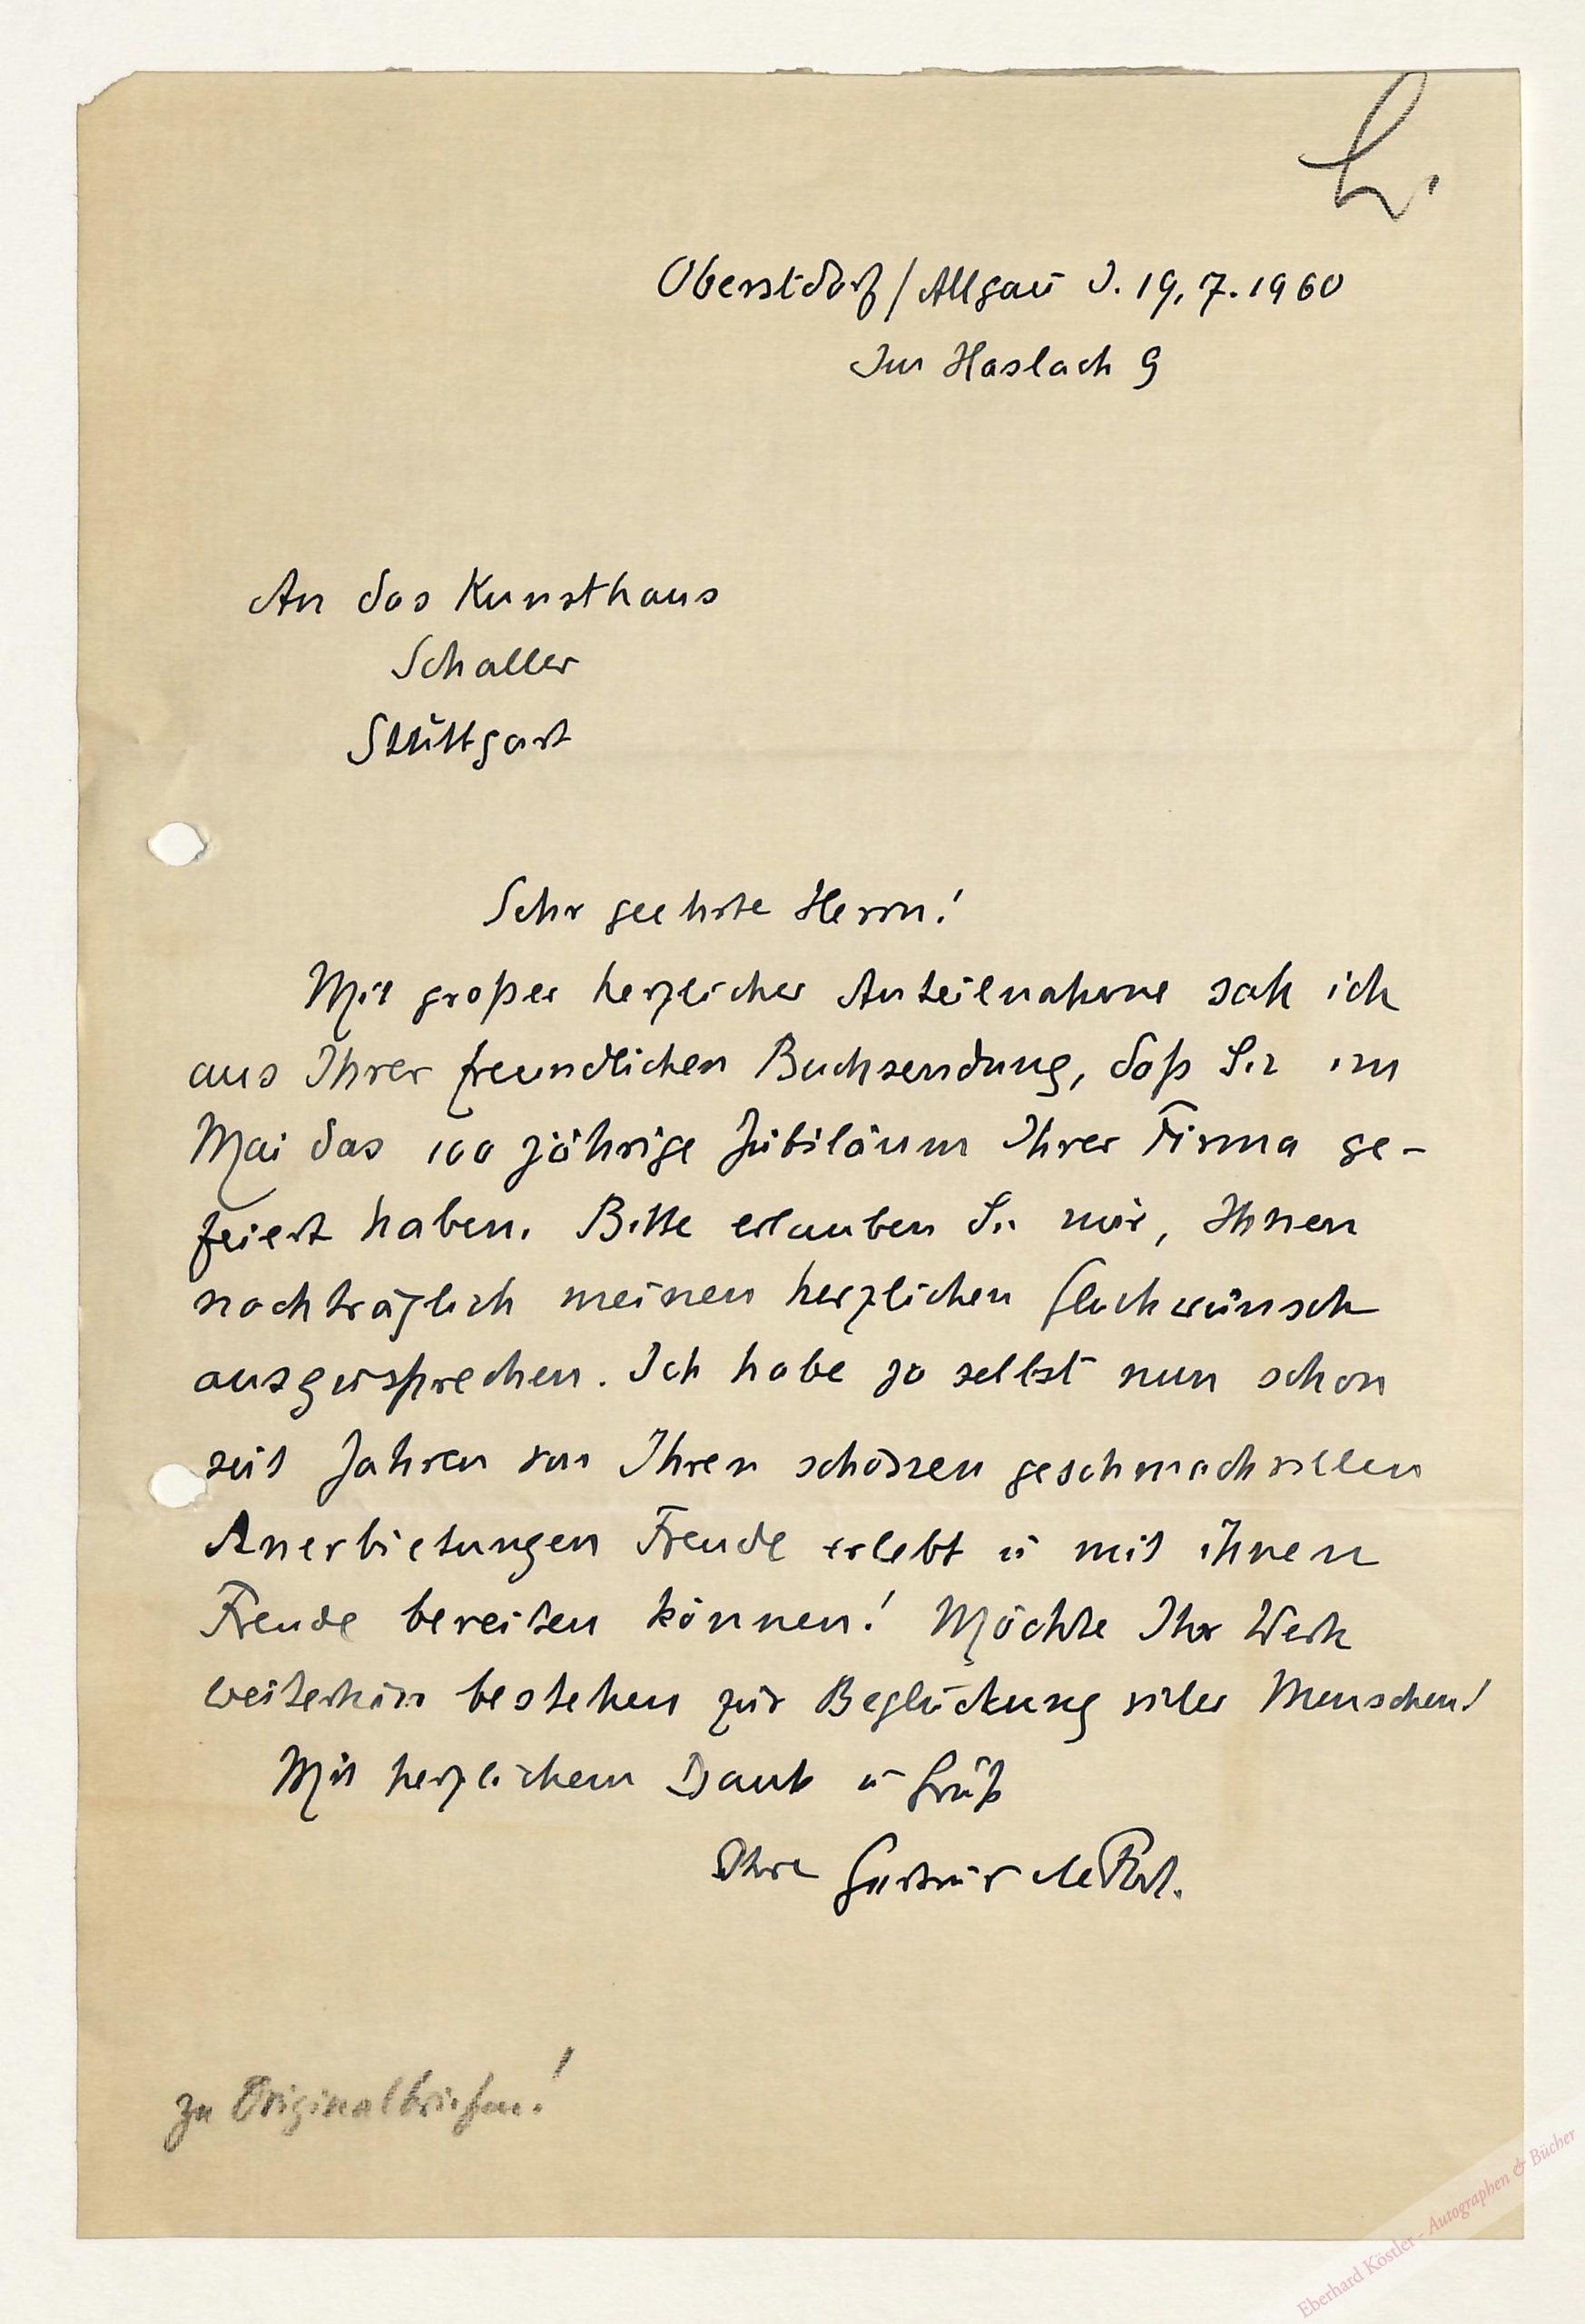 h.
Oberstdorf/Allgäu d. 19.7.1960
Im Haslach 9
An das Kunsthaus
Schaller
Stuttgart
Sehr geehrte Herrn!
Mit großer herzlicher Anteilnahme sah ich
aus Ihrer freundlichen Buchsendung, daß Sie im
Mai das 100 jährige Jubiläum Ihrer Firma ge-
feiert haben. Bitte erlauben Sie mir, Ihnen
nachträglich meinen herzlichen Glückwunsch
auszusprechen. Ich habe ja selbst nun schon
seit Jahren von Ihren schönen geschmackvollen
Anerbietungen Freude erlebt u mit ihnen
Freude bereiten können! Möchte Ihr Werk
weiterhin bestehen zur Beglückung vieler Menschen!
Mit herzlichem Dank u Gruß
Ihre Gertrud le Fort.
zu Originalbriefen!
Eberhard Köstler - Autographen & Bücher